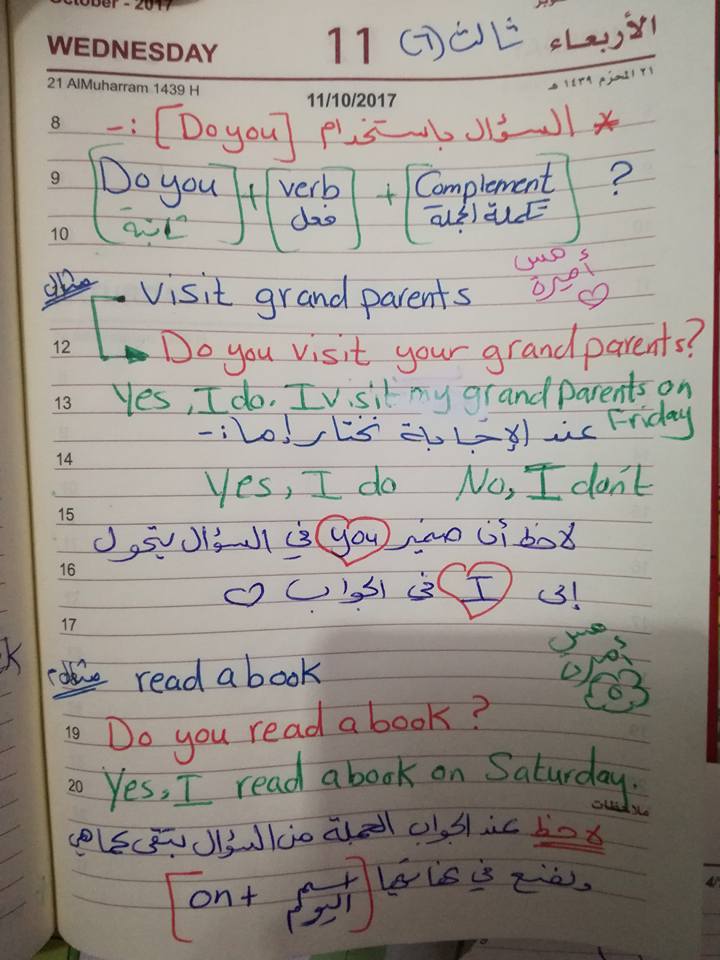 October - 2017
WEDNESDAY 11 ثالث (٦) الأربعاء
21 AlMuharram 1439 H ٢١ المحرم ١٤٣٩ هـ
11/10/2017
8 * السؤال باستخدام [Do you] :-
9 [Do you] + [verb] + [Complement] ?
[ثابتة] [فعل] [تكملة الجملة]
10
همس
أميرة ♡
مثال visit grand parents
12 Do you visit your grand parents?
13 Yes, I do. I visit my grand parents on
Friday
عند الإجابة نختار إما :-
14
Yes, I do No, I don't
15
لاحظ أن ضمير you في السؤال يتحول
16
إلى I في الجواب ♡
17
همس
أميرة
مثال٢ read a book
19 Do you read a book ?
20 Yes, I read a book on Saturday.
ملاحظات
لاحظ عند الجواب الجملة من السؤال بتبقى كما هي
ونضع في نهايتها [اسم اليوم + on]